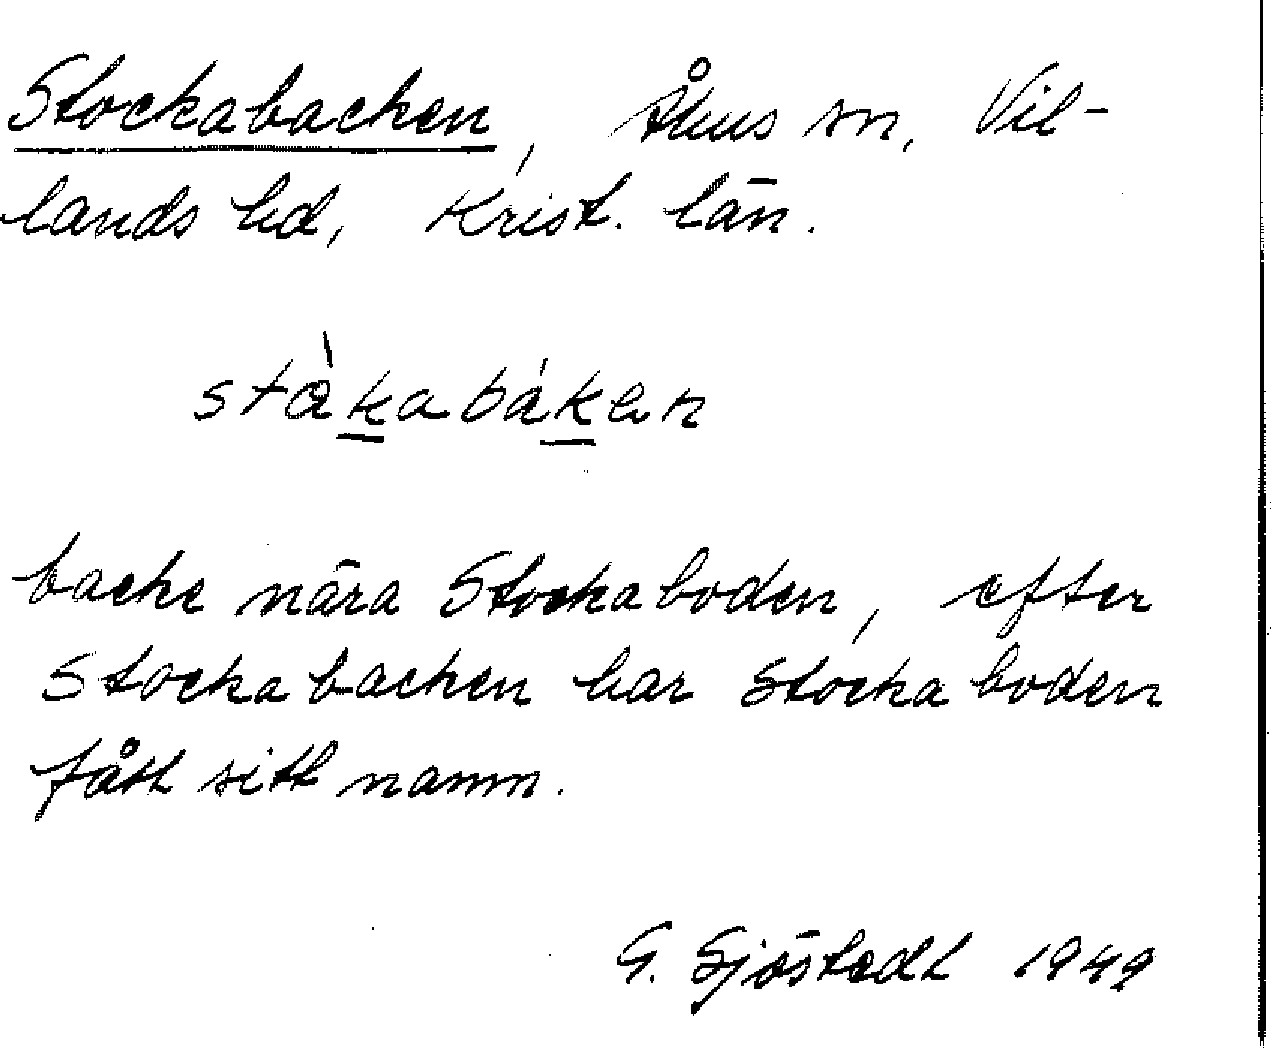 Stockabacken, Åhus sn, Vil-
lands hd, Krist. län.
stàkabákan
backe nära Stockaboden, efter
Stockabacken har Stockaboden
fått sitt namn.
G. Sjöstedt 1949